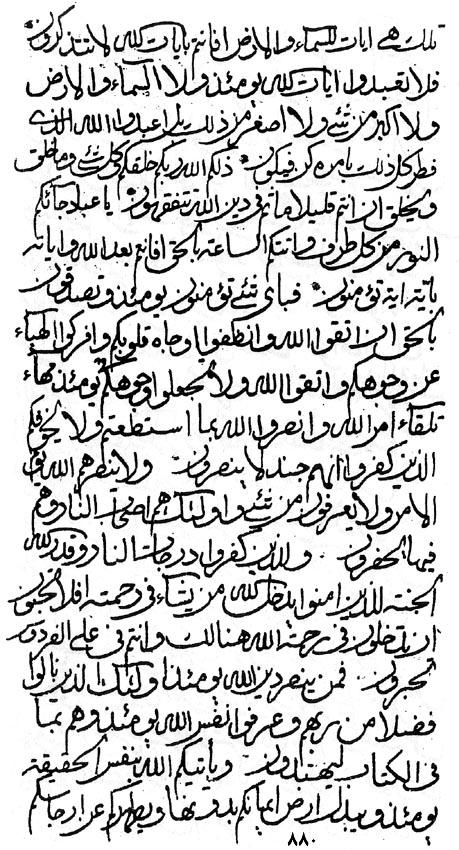 تلك هي ايات للسماء والارض افانتم بايات الله لا تتذكرون
فلا تعبدوا ايات الله يومئذ ولا السماء والارض
ولا اكبر من شئ ولا اصغر من ذلك بل اعبدوا الله الذي
فطر كل ذلك بامره كن فيكون ذلكم الله ربكم خلقكم وكل شئ وما خلق
ويخلق ان انتم قليلا ما تم في دين الله تتفقهون يا عباد جائكم
النور من كل طرف واتتكم الساعة بالحق افانتم بعد الله واياته
باية اية تؤمنون فباي شئ تؤمنون يومئذ وتصدقون
بالحق ان اتقوا الله وانظفوا اوجاه قلوبكم وافركوا الهباء
عن وجوهكم واتقوا الله ولا تجعلوا وجوهكم يومئذ
تلقاء امر الله وانصروا الله بما استطعتم ولا
الذين كفروا انهم جند لا ينصرون ولا ينصرهم الله في
الامر ولا يعرفون من شئ واولئك هم اصحاب النار وهم
فيها وللذين كفروا دركات النار وقدر الله
الجنة للذين امنوا يدخل الله من يشاء في رحمته افلا تحبون
ان تدخلون في رحمة الله هنالك وانتم في على الفردوس
تحبرون فمن ينصر دين الله يومئذ اولئك الذين نالوا
فضلا من ربهم وعرفوا نفس الله يومئذ وهم بما
في الكتاب ليهتدون وياتيكم الله بنفس الحقيقة
يومئذ ويبدل ارض ايمانكم بدونها ويطهركم عن ارجاسكم
٨٨٠